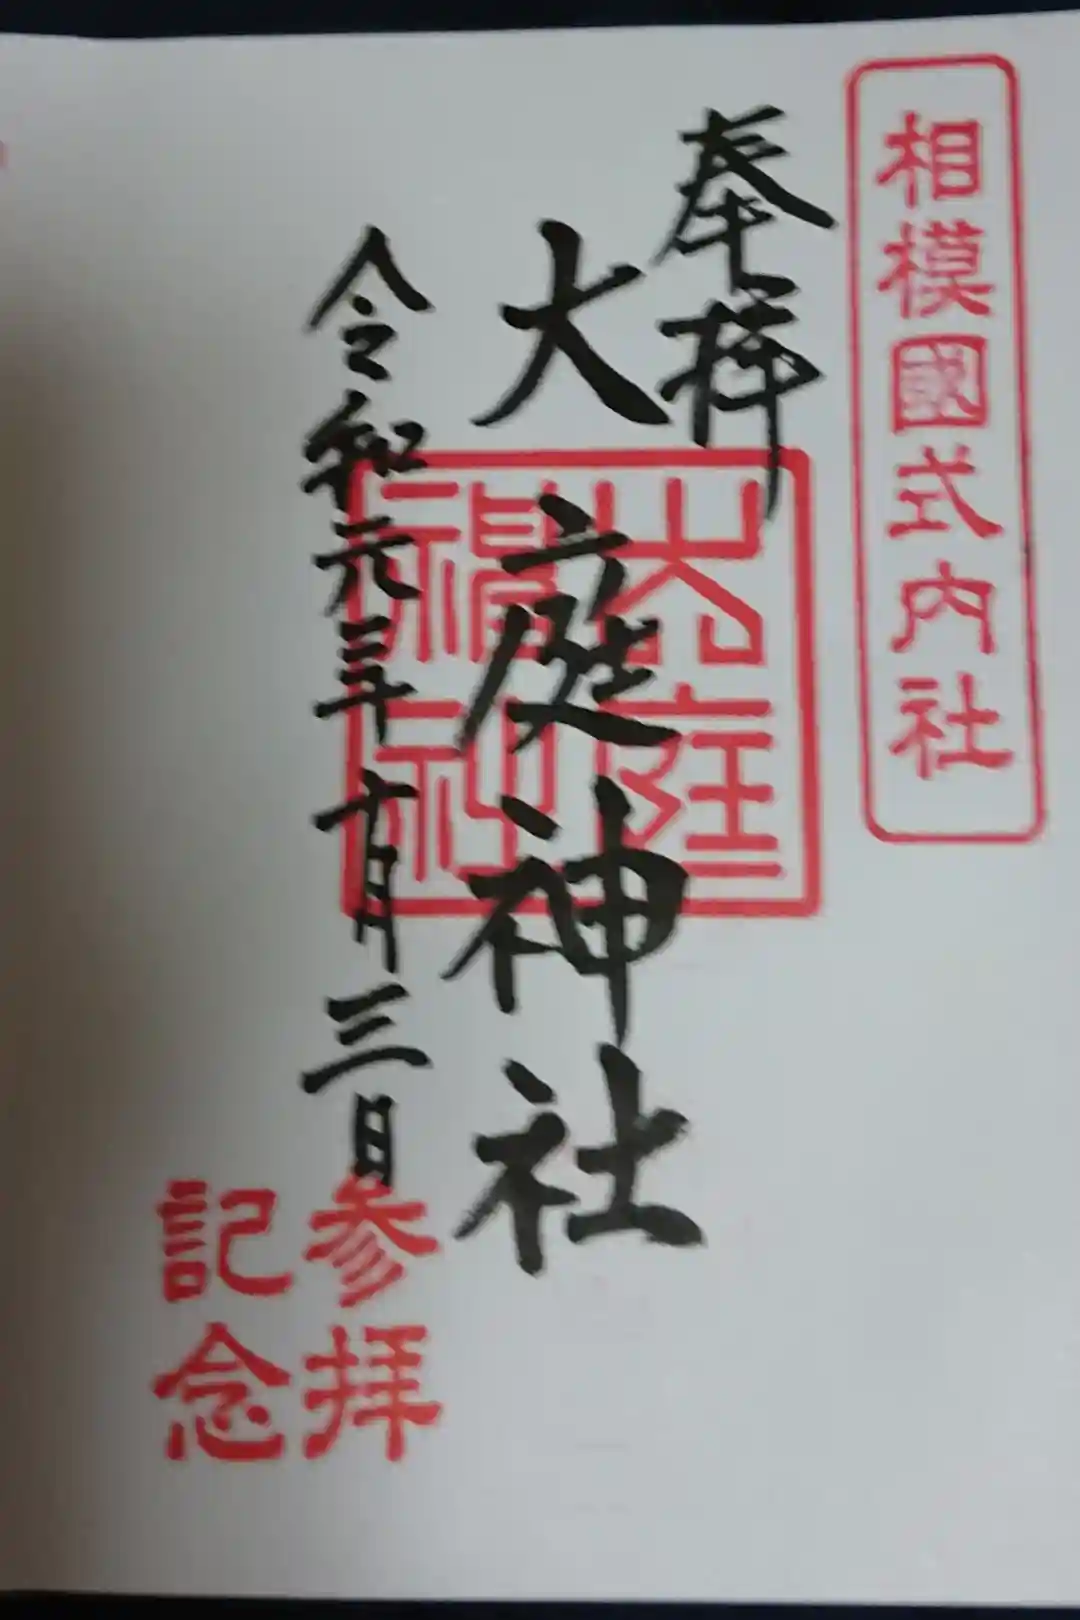 相模國式内社
奉拝
大庭神社
大庭
神社
令和元年 月三日
参拝
記念